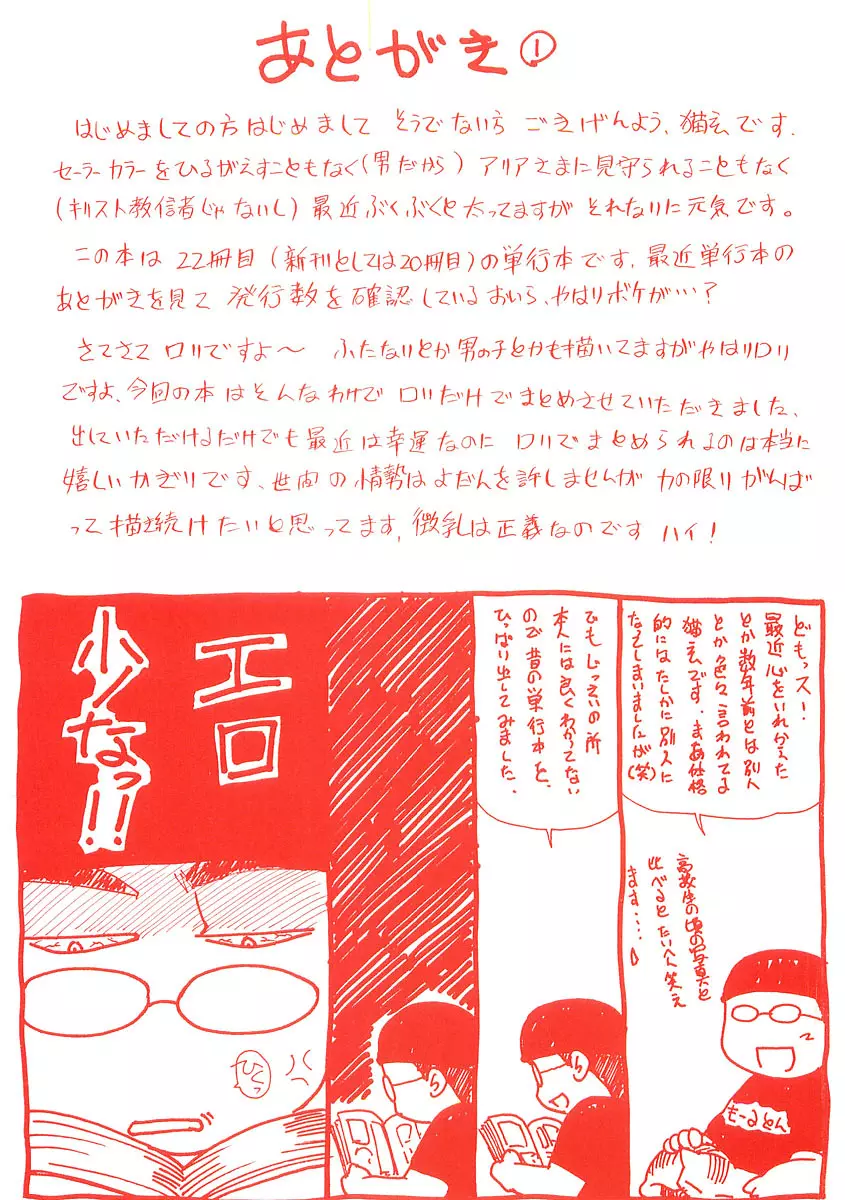 あとがき①
はじめましての方はじめまして そうでない方 ごきげんよう、猫玄です.
セーラーカラーをひるがえすこともなく(男だから) アリアさまに見守られることもなく
(キリスト教信者じゃないし) 最近ぶくぶくと太ってますが それなりに元気です。
この本は 22冊目 (新刊としては20冊目)の単行本です. 最近単行本の
あとがきを見て 発行数を確認しているおいら、やはりボケが…?
さてさて ロリですよ〜 ふたなりとか男の子とかも描いてますがやはりロリ
ですよ、今回の本はそんなわけで ロリだけでまとめさせていただきました、
出していただけるだけでも最近は幸運なのに ロリでまとめられるのは本当に
嬉しいかぎりです、世間の情勢はよだんを許しませんが 力の限りがんば
って描き続けたいと思ってます, 微乳は正義なのです ハイ!
どもっス!
最近心をいれかえた
とか数年前とは別人
とか色々言われてる
猫玄です. まあ仕格
的にはたしかに別人に
なってしまいましたが(笑)
高校生の頃の写真と
比べるとたいへん笑え
ます....
もーるとん
でもじっさいの所
本人には良くわかってない
ので昔の単行本を、
ひっぱり出してみました.
エロ
少ノなっ!!
ひくっ